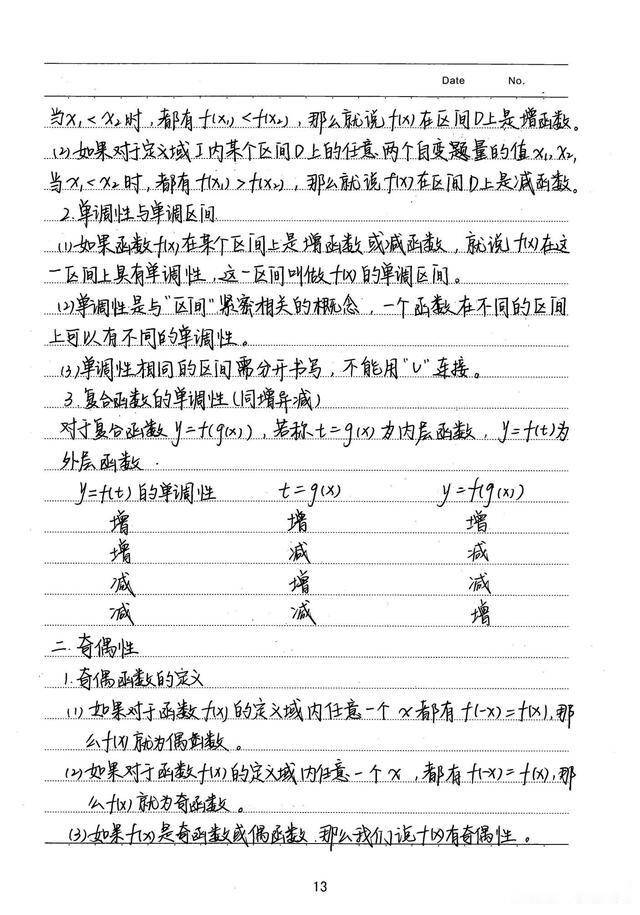 Date No.
当x₁<x₂时,都有f(x₁)<f(x₂),那么就说f(x)在区间D上是增函数。
(2)如果对于定义域I内某个区间D上的任意两个自变题量的值x₁,x₂,
当x₁<x₂时,都有f(x₁)>f(x₂),那么就说f(x)在区间D上是减函数。
2.单调性与单调区间
(1)如果函数f(x)在某个区间上是增函数或减函数,就说f(x)在这
一区间上具有单调性,这一区间叫做f(x)的单调区间。
(2)单调性是与"区间"紧密相关的概念,一个函数在不同的区间
上可以有不同的单调性。
(3)单调性相同的区间需分开书写,不能用"U"连接。
3.复合函数的单调性(同增异减)
对于复合函数y=f(g(x)),若称t=g(x)为内层函数,y=f(t)为
外层函数.
y=f(t)的单调性 t=g(x) y=f(g(x))
增 增 增
增 减 减
减 增 减
减 减 增
二.奇偶性
1.奇偶函数的定义
(1)如果对于函数f(x)的定义域内任意一个x都有f(-x)=f(x),那
么f(x)就为偶函数。
(2)如果对于函数f(x)的定义域内任意一个x,都有f(-x)=f(x),那
么f(x)就为奇函数。
(3)如果f(x)是奇函数或偶函数.那么我们说f(x)有奇偶性。
13